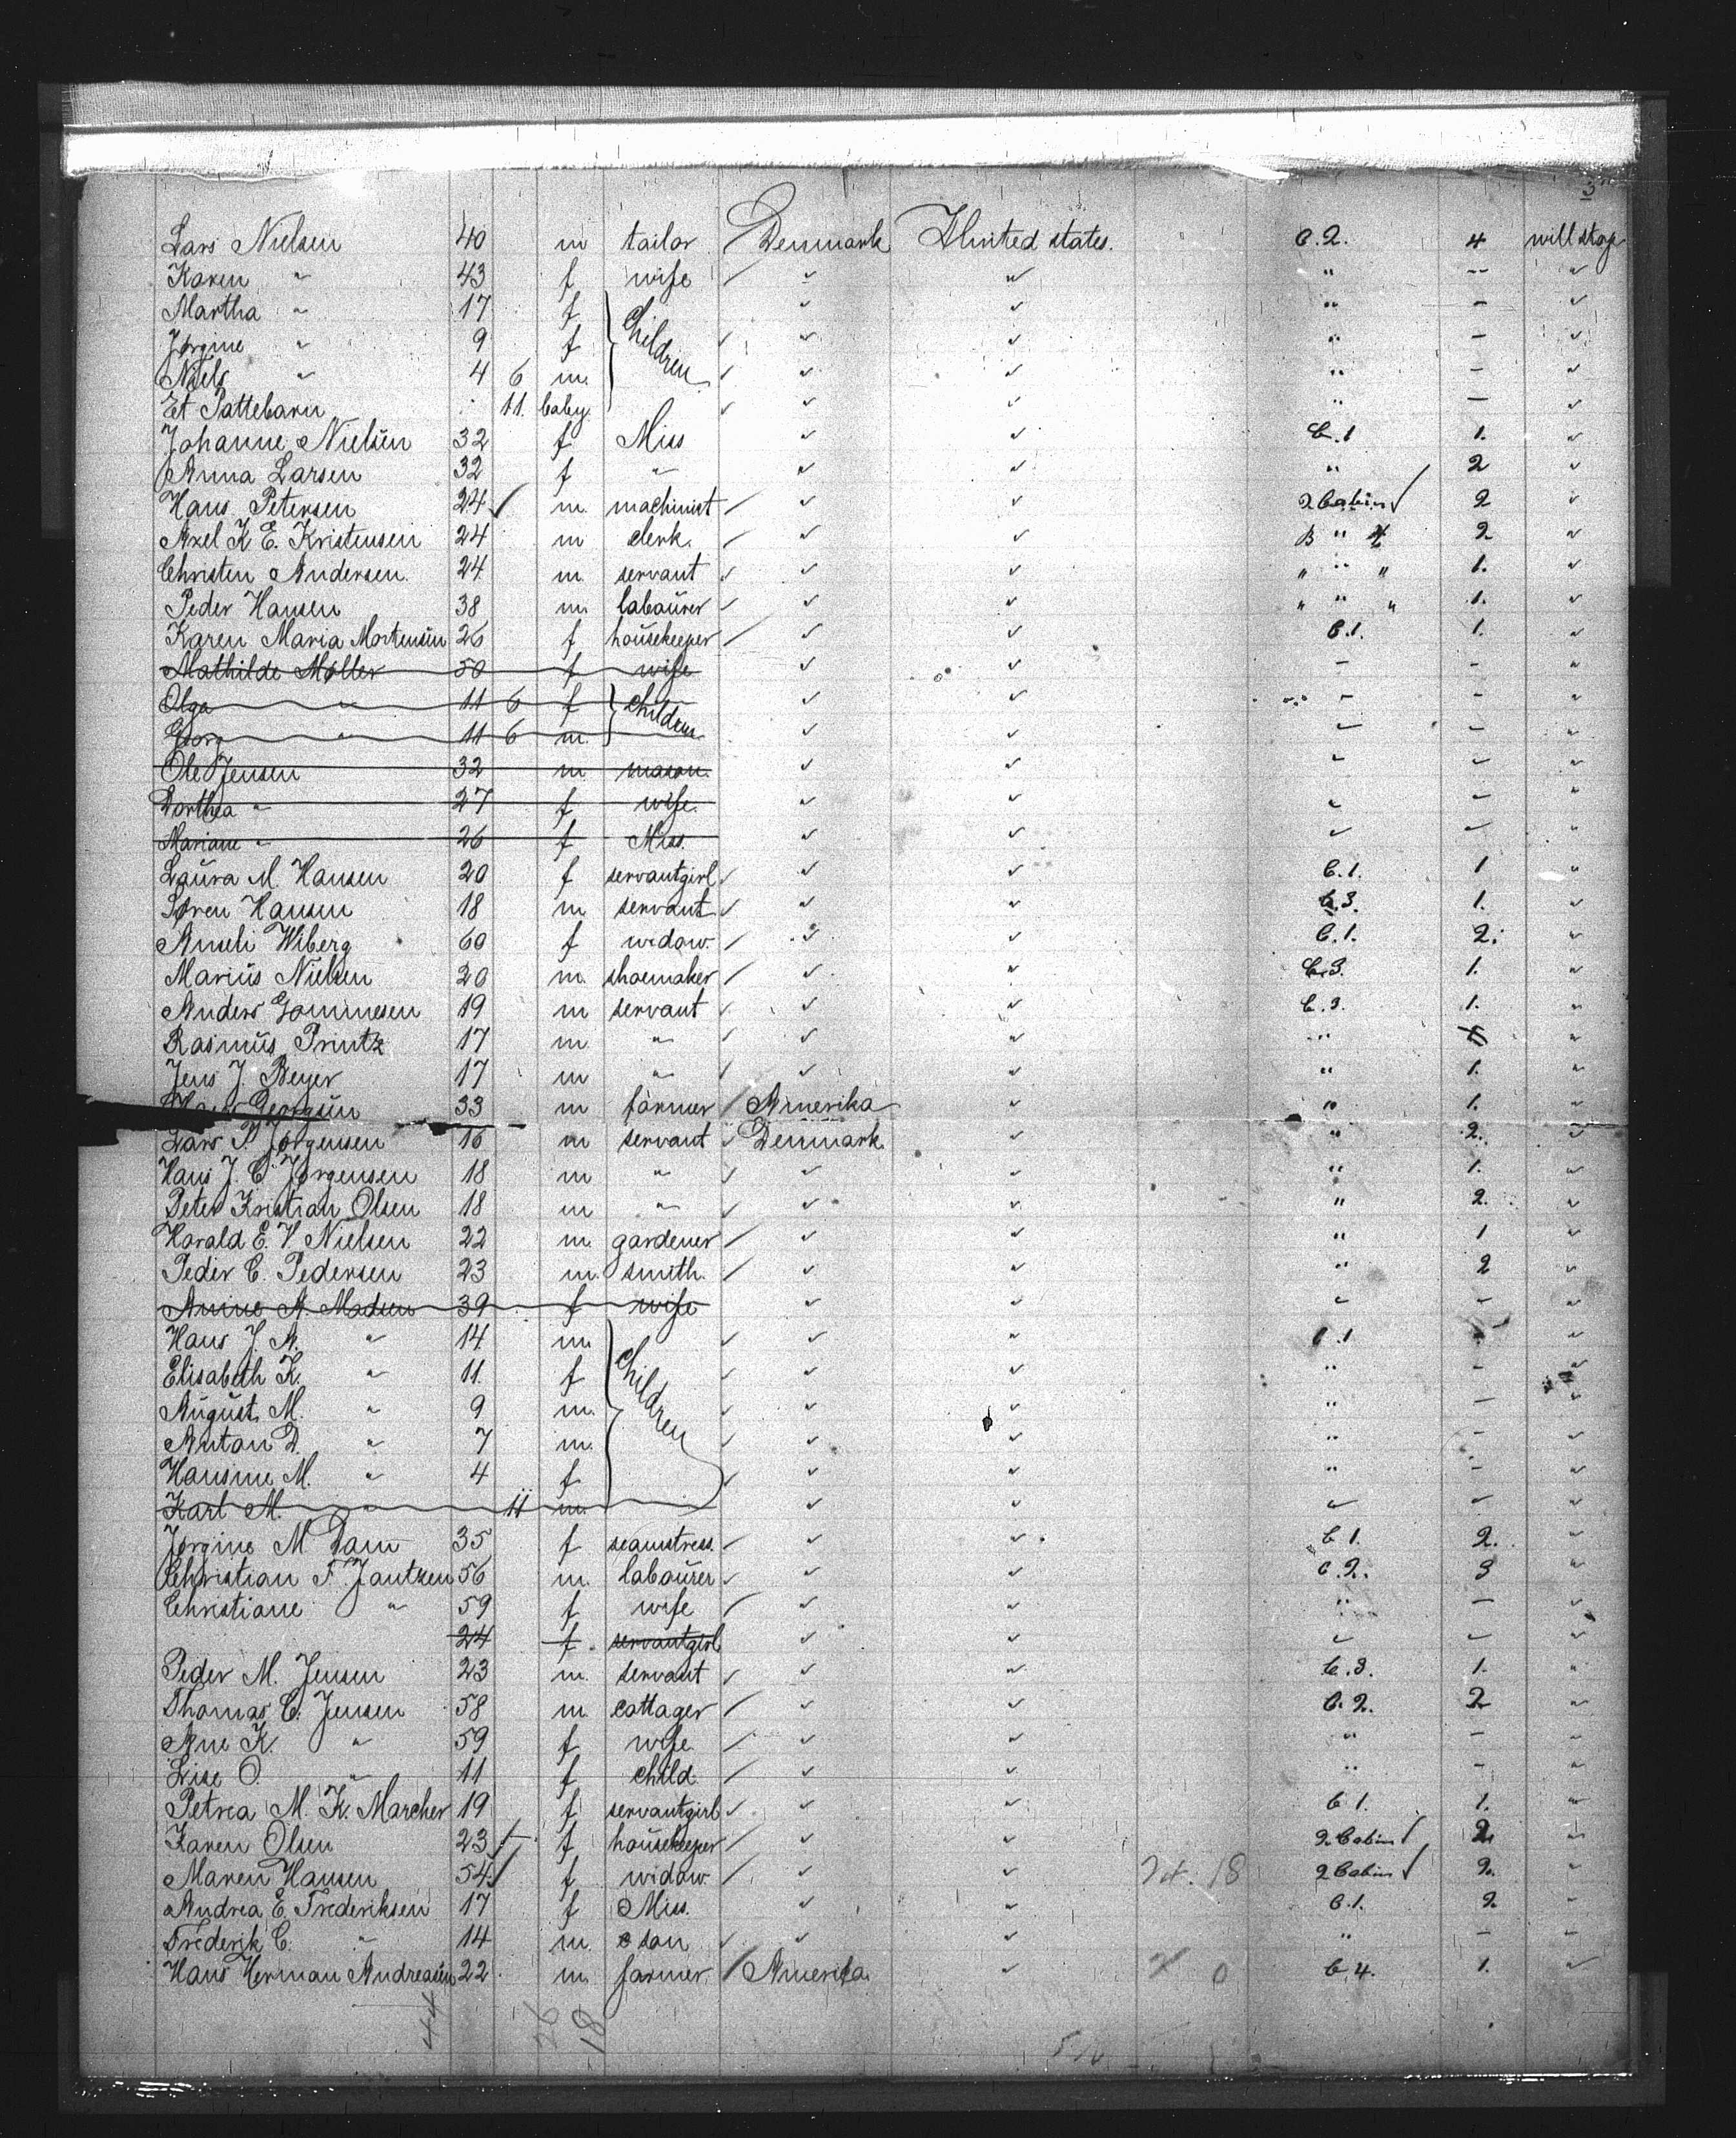 3
Lars Nielsen 40 m tailor Denmark United states. C.2. 4 will stop
Karen " 43 f wife " " " " "
Martha " 17 f Children " " " - "
Jørgine " 9 f " " " - "
Niels " 4 6 m. " " " - "
Et Pattebarn 11. baby. " " " - "
Johanne Nielsen 32 f Miss " " C.1 1. "
Anna Larsen 32 f " " " " 2 "
Hans Petersen 24 m. machinist " " 2 Cabin 2 "
Axel K E. Kristensen 24 m clerk. " " B " 4 2 "
Christen Andersen. 24 m. servant " " " " " 1. "
Peder Hansen 38 m. labaürer " " " " " 1. "
Karen Maria Mortensen 26 f hoüsekeeper " " C.1. 1. "
Mathilde Møller 50 f wife " " - - "
Olga " 11 6 f children " " - - "
Georg " 11 6 m. " " " - "
Ole Jensen 32 m mason. " " " " "
Dorthea " 27 f wife. " " " " "
Mariane " 26 f Miss. " " " " "
Laüra M. Hansen 20 f servantgirl " " C.1. 1 "
Søren Hansen 18 m servant " " C.3. 1. "
Anseli Wiberg 60 f widow " " C.1. 2. "
Mariüs Nielsen 20 m. shoemaker " " C.3. 1. "
Anders Gommesen 19 m servant " " C.3. 1. "
Rasmüs Printz 17 m " " " " "
Jens J. Beyer 17 m " " " " 1. "
Georgsen 33 m farmer Amerika " " 1. "
Lars P. Jørgensen 16 m servant Denmark " " 2. "
Hans J. C. Jørgensen 18 m " " " " 1. "
Peter Kristian Olsen 18 m " " " " 2. "
Harald E. V. Nielsen 22 m gardener " " " 1 "
Peder C. Pedersen 23 m. smith. " " " 2 "
Anine A. Madsen 39 f wife " " " " "
Hans J. A. " 14 m. Children " " C.1 "
Elisabeth K. " 11. f " " " - "
Aügüst M. " 9 m. " " " - "
Anton D. " 7 m. " " " - "
Hansine M. " 4 f " " " - "
Karl M. " 11 m. " " " " "
Jørgine M Dam 35 f seamstress. " " C 1. 2. "
Christian F. Jantzen 56 m. labaürer " " C.2. 3 "
Christiane " 59 f wife " " " - "
24 f servantgirl " " " " "
Peder M. Jensen 23 m. servant " " C.3. 1. "
Thomas C. Jensen 58 m. cottager " " C.2. 2 "
Ane K. " 59 f wife " " " - "
Lise O. " 11 f child. " " " - "
Petrea M. K. Marcher 19 f servantgirl " " C 1. 1. "
Karen Olsen 23 f hoüsekeeper " " 2. Cabin 2 "
Maren Hansen 54 f widow. " " 18 2 Cabin 2. "
Andrea E. Frederiksen 17 f Miss. " " C.1. 2 "
Frederik C. " 14 m. son " " " - "
Hans Herman Andreasen 22 m. farmer. Amerika " 0 C.4. 1. "
44 26 18